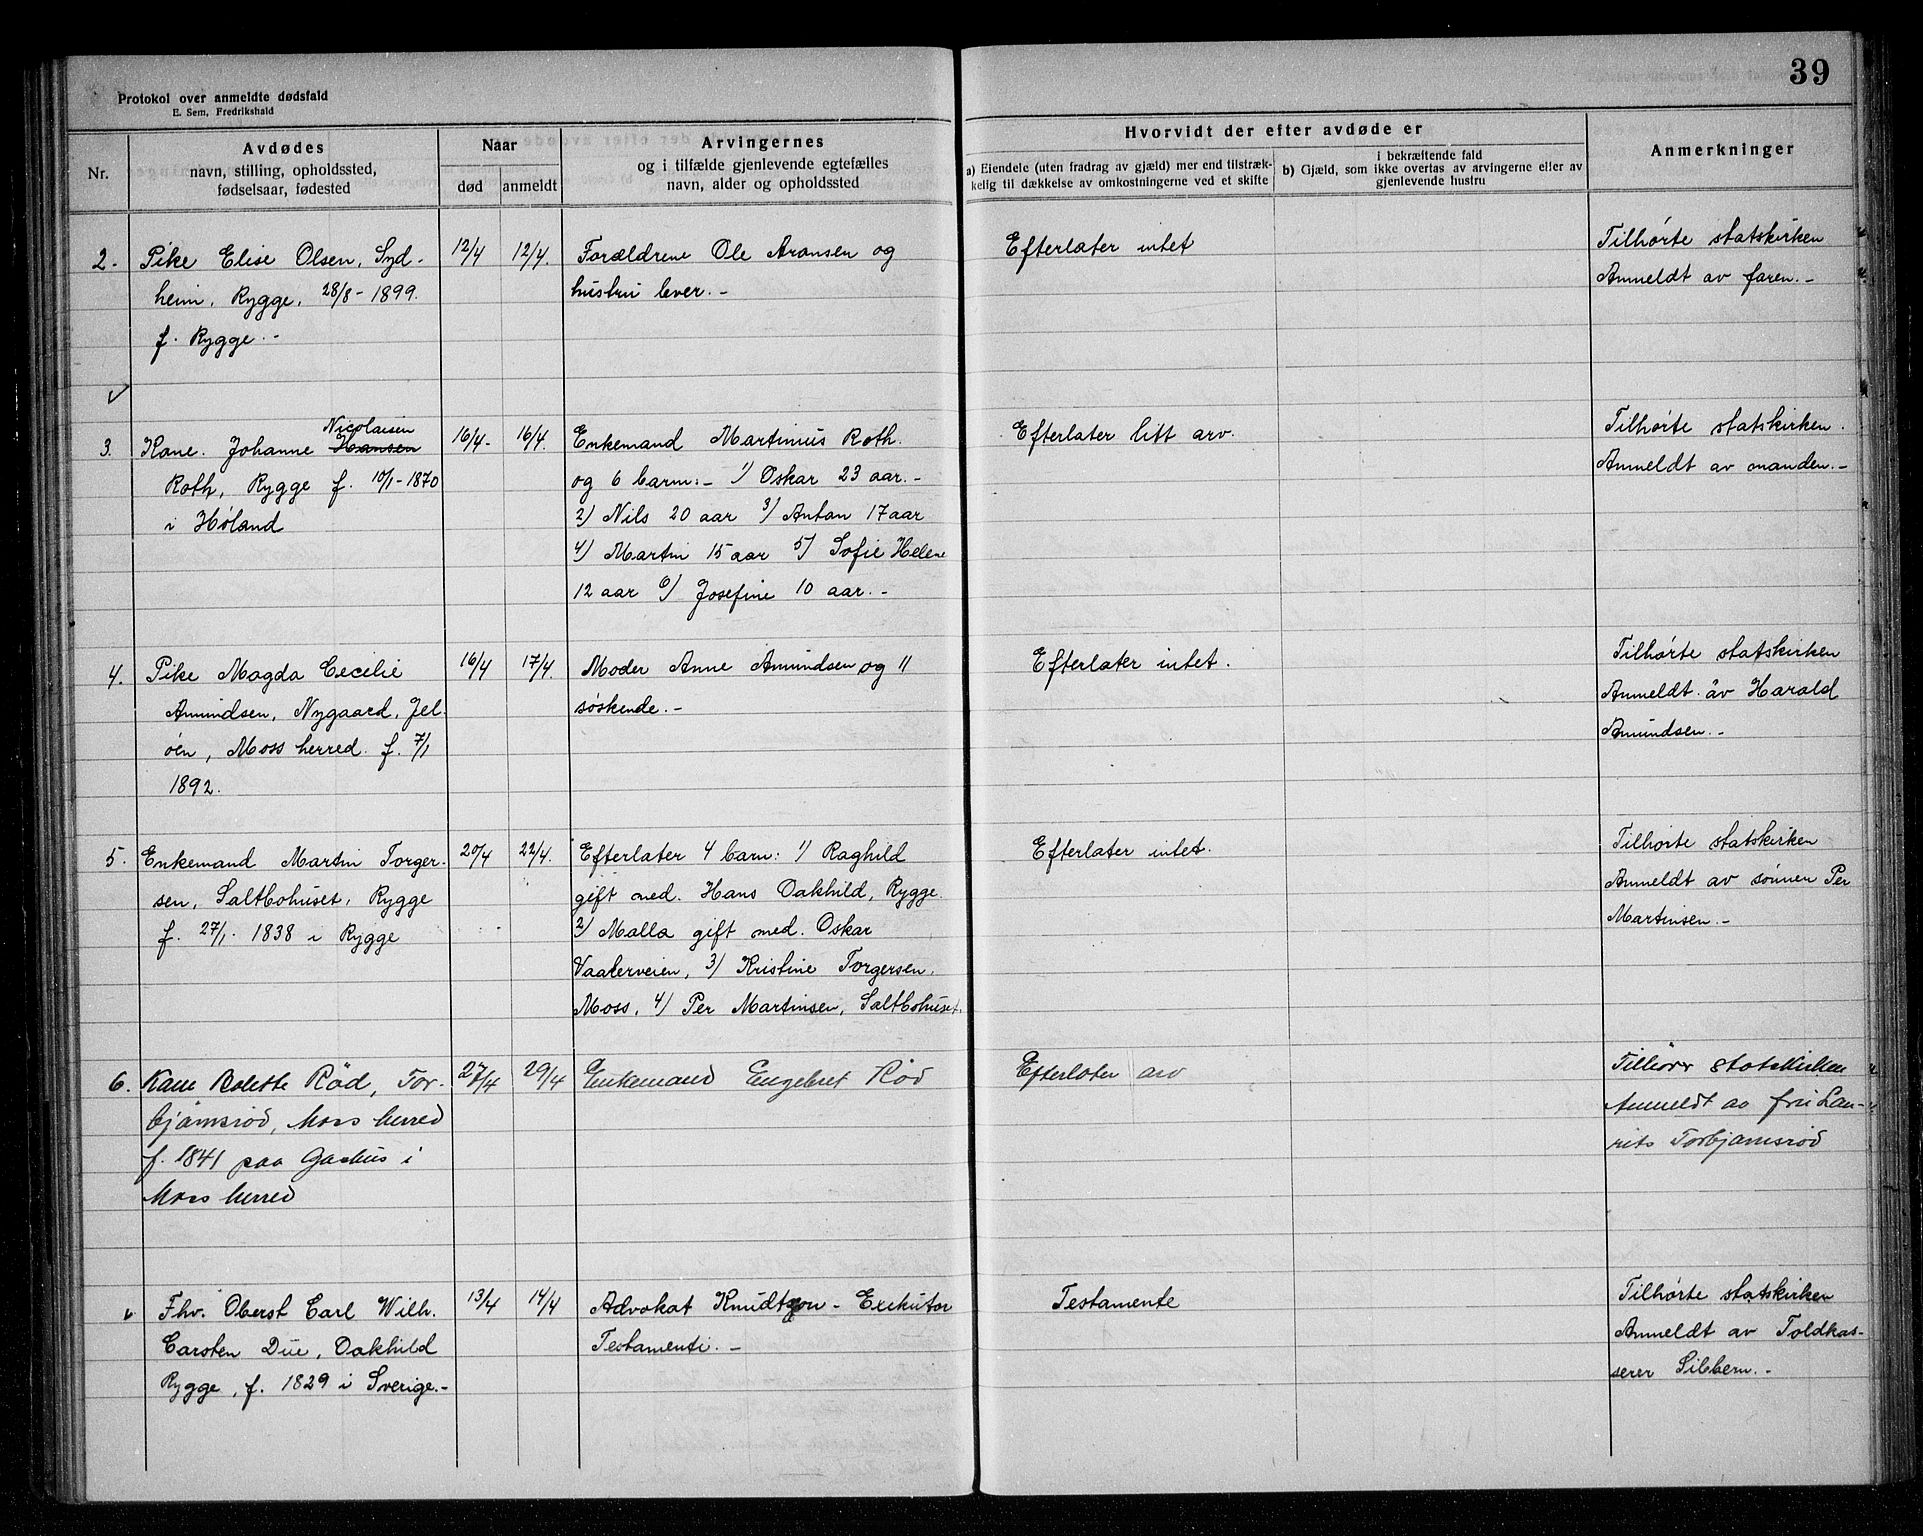 39
Protokol over anmeldte dødsfald
E. Sem, Fredrikshald
Nr.
Avdødes
navn, stilling, opholdssted,
fødselsaar, fødested
Naar
død
anmeldt
Arvingernes
og i tilfælde gjenlevende egtefælles
navn, alder og opholdssted
Hvorvidt der efter avdøde er
a) Eiendele (uten fradrag av gjæld) mer end tilstræk-
kelig til dækkelse av omkostningerne ved et skifte
i bekræftende fald
b) Gjæld, som ikke overtas av arvingerne eller av
gjenlevende hustru
Anmerkninger
2.
Pike Elise Olsen, Syd-
heim, Rygge, 28/8 - 1899.
f. Rygge. -
12/4
12/4.
Forældrene Ole Aronsen og
hustru lever. -
Efterlater intet
Tilhørte statskirken
Anmeldt av faren. -
✓
3.
Nicolaisen
Kone. Johanne Hansen
Roth, Rygge f. 10/1 - 1870
i Høland
16/4-
16/4.
Enkemand Martinius Roth.
og 6 barn: - 1) Oskar 23 aar. -
2) Nils 20 aar 3) Anton 17 aar
4) Martin 15 aar 5) Sofie Helene
12 aar 6) Josefine 10 aar. -
Efterlater litt arv.
Tilhørte statskirken.
Anmeldt av manden. -
4.
Pike Magda Cecilie
Amundsen, Nygaard, Jel-
öen, Moss herred. f. 7/1
1892.
16/4
17/4.
Moder Anne Amundsen og 11
søskende. -
Efterlater intet.
Tilhørte statskirken
Anmeldt av Harald
Amundsen. -
5.
Enkemand Martin Torger-
sen, Saltbohuset, Rygge
f. 27/1. 1838 i Rygge
20/4
22/4.
Efterlater 4 barn: 1) Raghild
gift med. Hans Oakhild, Rygge.
2) Malla gift med. Oskar
Vaalerveien, 3) Kristine Torgersen.
Moss, 4) Per Martinsen, Saltbohuset.
Efterlater intet.
Tilhørte statskirken
Anmeldt av sønnen Per
Martinsen. -
6.
Kone Bolette Röd, Tor-
bjørnsrød, Moss herred
f. 1841 paa Gashus i
Moss herred
27/4
29/4
Enkemand Engebret Röd
Efterlater arv
Tilhörer statskirken
Anmeldt av fru Lau-
rits Torbjørnsrød
Fhv. Oberst Carl Wilh.
Carsten Due, Oakhild
Rygge, f. 1829 i Sverige. -
13/4
14/4
Advokat Knudtzon - Exekutor
Testamenti. -
Testamente
Tilhørte statskirken
Anmeldt av Toldkas-
serer Sibbern. -